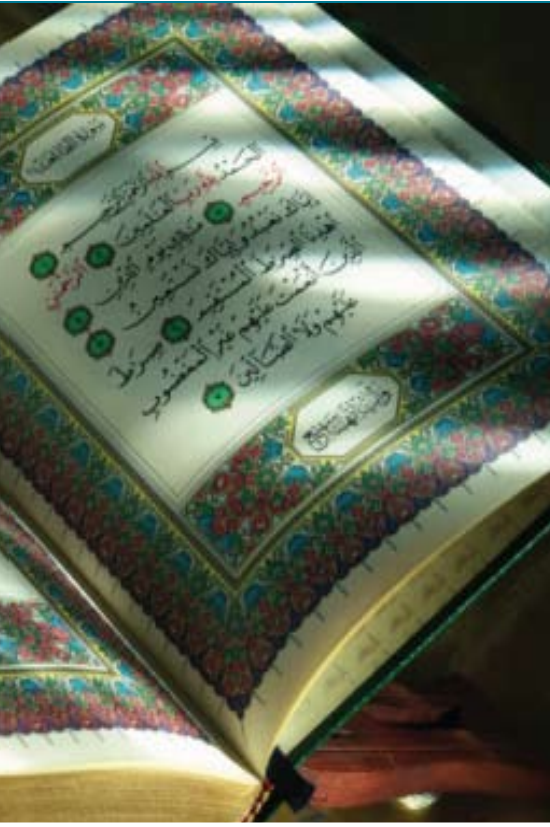 سورة الفاتحة
بسم الله الرحمن الرحيم
الحمد لله رب العلمين الرحمن
الرحيم ملك يوم الدين
إياك نعبد وإياك نستعين
اهدنا الصرط المستقيم صرط
الذين أنعمت عليهم غير المغضوب
عليهم ولا الضالين